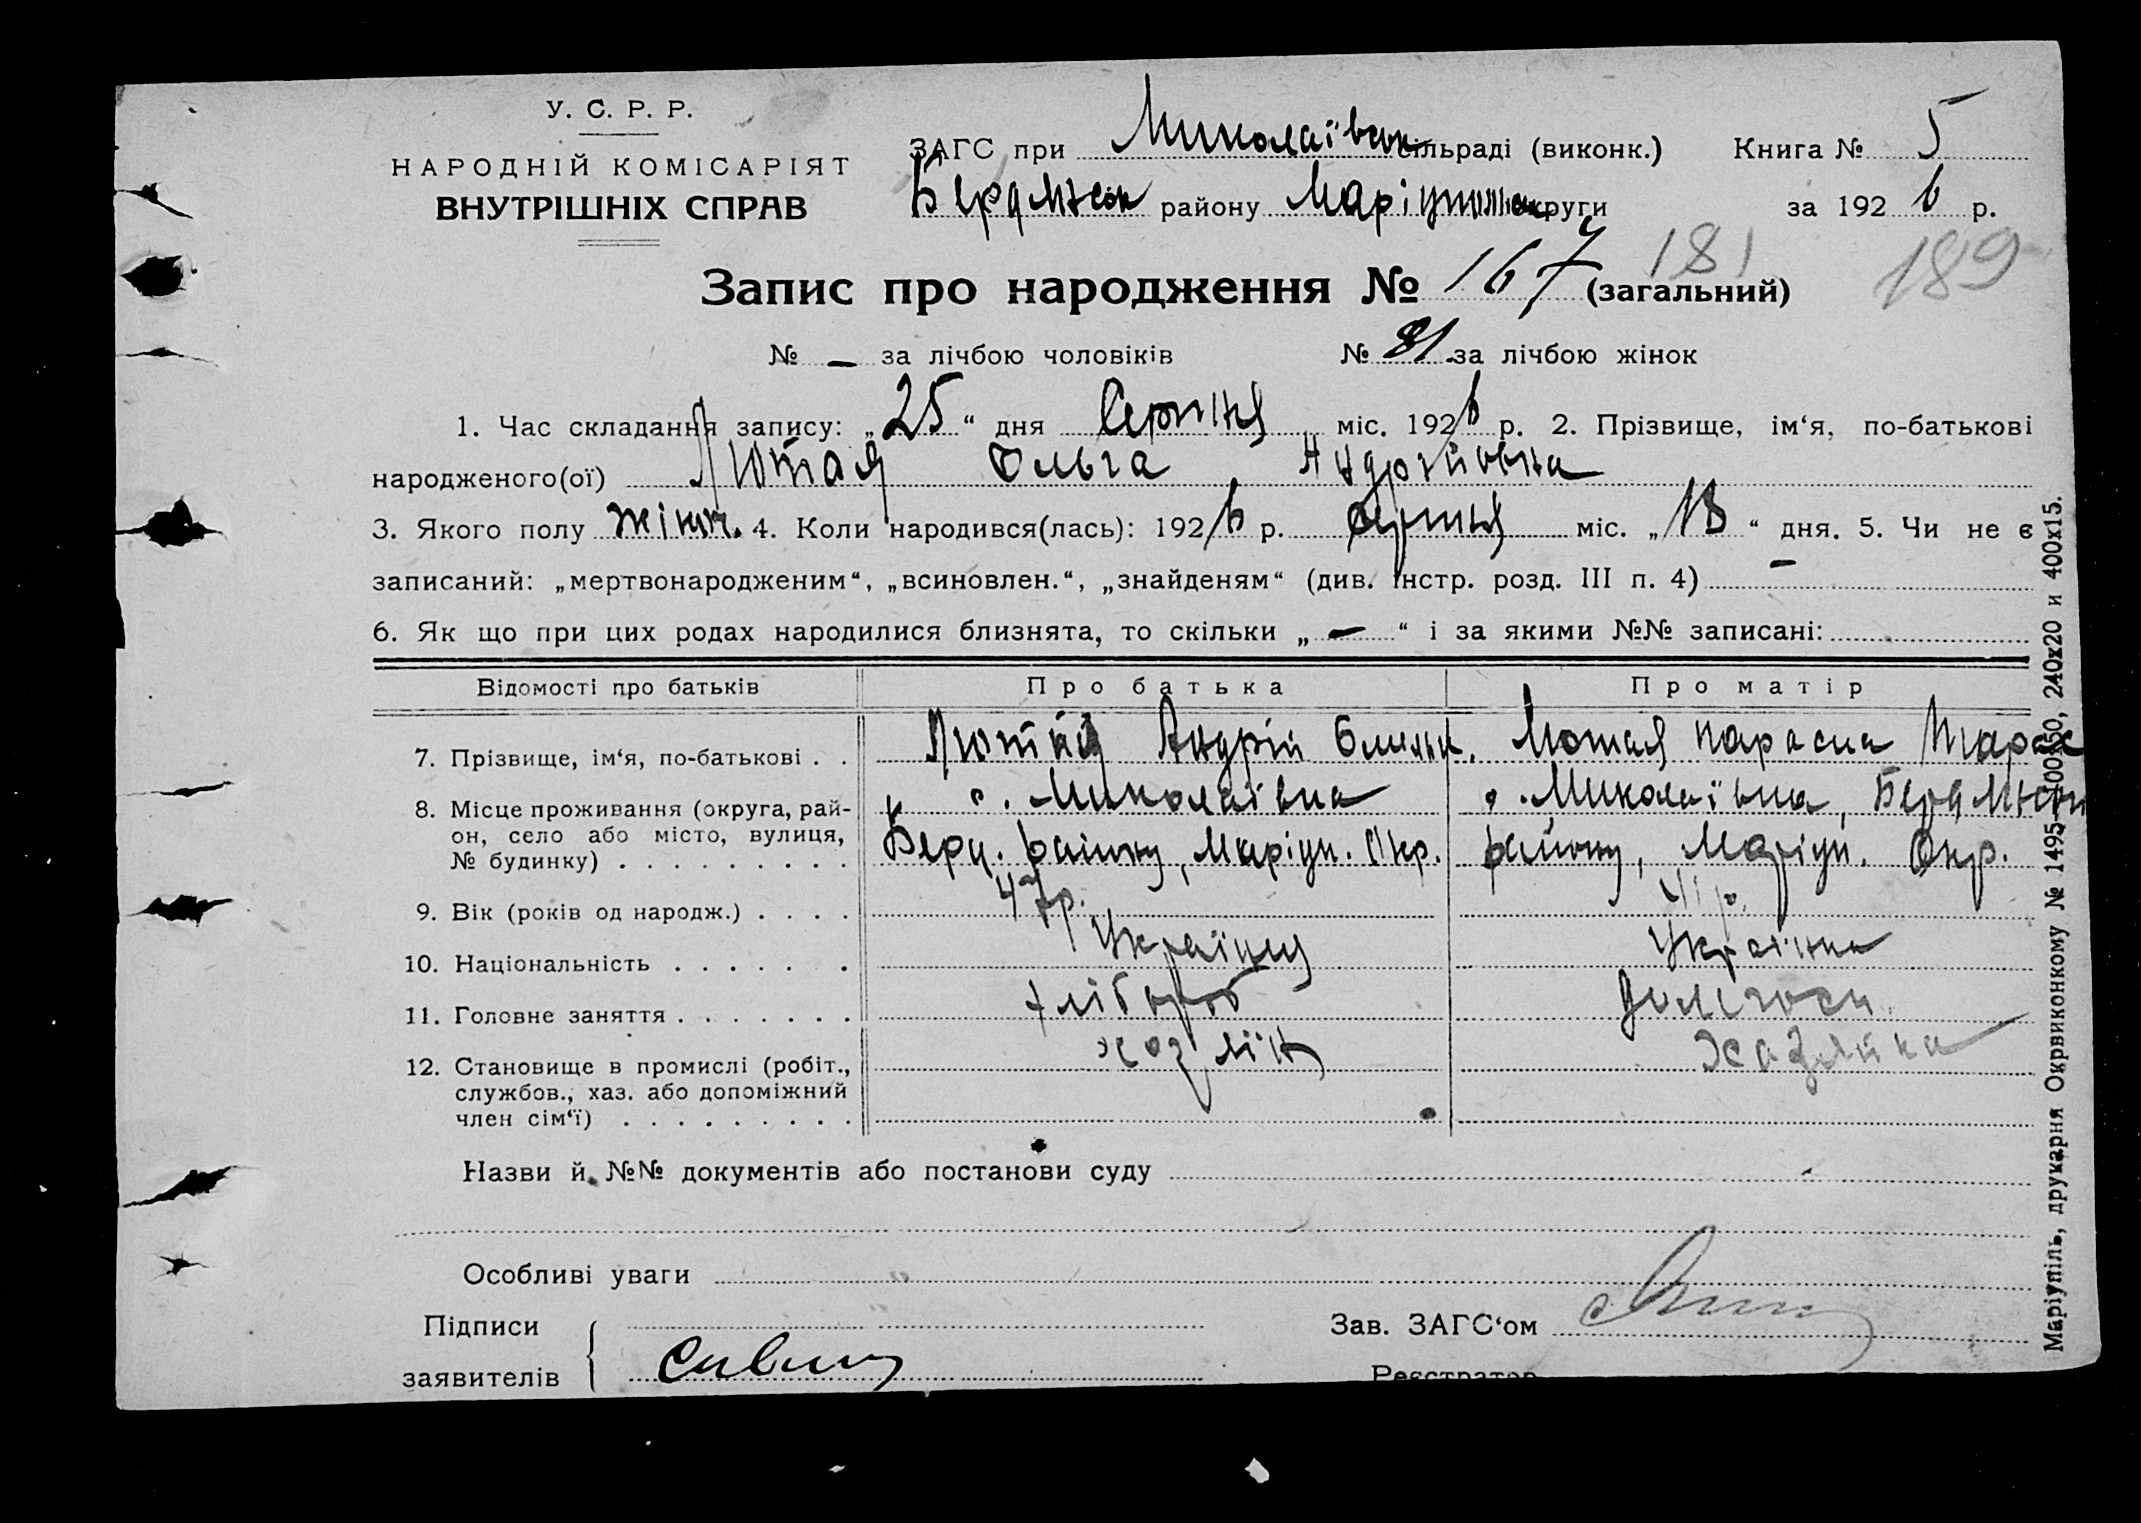 У. С. Р. Р.
НАРОДНІЙ КОМІСАРІЯТ
ВНУТРІШНІХ СПРАВ
ЗАГС при Миколаївськ сільраді (виконк.) Книга № 5
Бердянськ району Маріупольск округи за 1926 р.
Запис про народження № 167 (загальний)
181 189
№ – за лічбою чоловіків № 81 за лічбою жінок
1. Час складання запису: „25“ дня Серпня міс. 1926 р. 2. Прізвище, ім‘я, по-батькові
народженого(ої) Лютая Ольга Андрійовна
3. Якого полу жіноч. 4. Коли народився(лась): 1926 р. серпня міс. „18“ дня. 5. Чи не є
записаний: „мертвонародженим“, „всиновлен.“, „знайденям“ (див. Інстр. розд. III п. 4) –
6. Як що при цих родах народилися близнята, то скільки „–“ і за якими №№ записані:
Відомості про батьків Про батька Про матір
7. Прізвище, ім‘я, по-батькові . . Лютий Андрій Омельк. Лютая Параска Тарас
8. Місце проживання (округа, рай- с. Миколаївка с. Миколаївка, Бердянськ
он, село або місто, вулиця,
№ будинку) . . . . . . . . . Берд. району, Маріуп. Окр. району, Маріуп. Окр.
9. Вік (років од народж.) . . . . 47р. 41 р.
10. Національність . . . . . . Українец Українка
11. Головне заняття . . . . . . . хлібороб домгосп.
12. Становище в промислі (робіт., хозяїн хазяйка
службов., хаз. або допоміжний
член сім‘ї) . . . . . . . . .
Назви й №№ документів або постанови суду
Особливі уваги
Підписи Зав. ЗАГС‘ом
заявителів
Реєстратор
Маріупіль, друкарня Окрвиконкому № 1495—10050, 240х20 и 400х15.